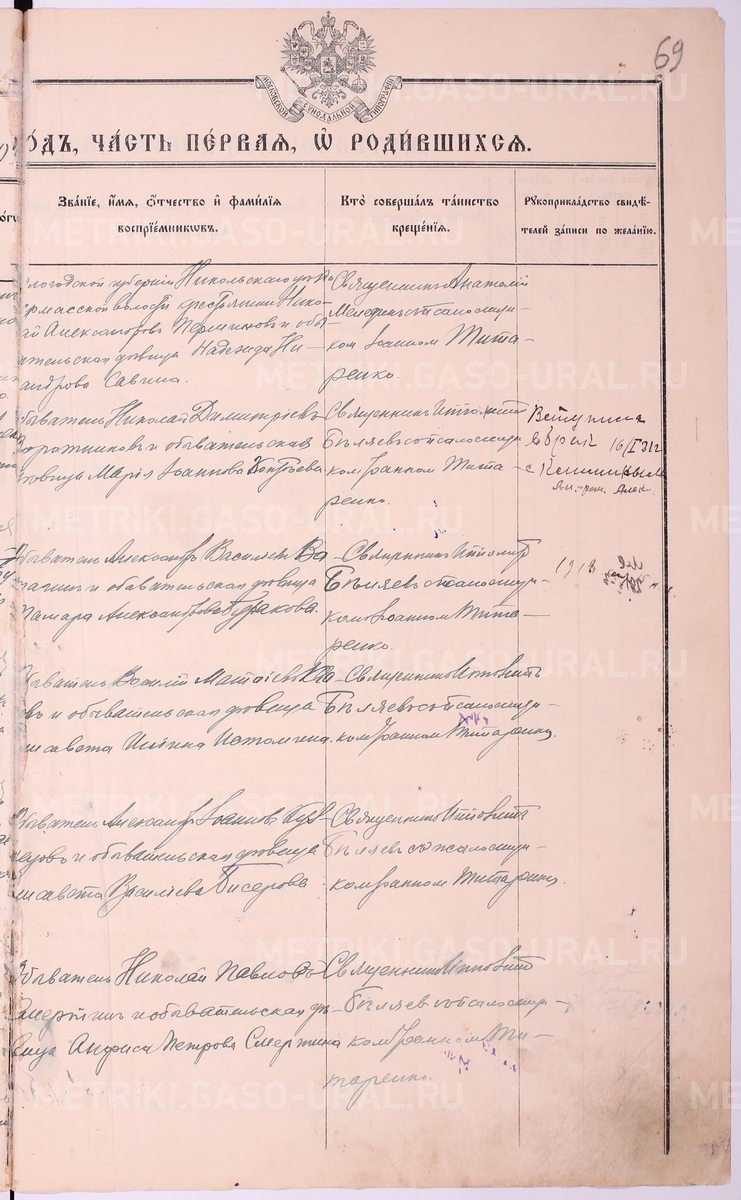 69
МОСКОВСКОЙ СѴНОДАЛЬНОЙ ТИПОГРАФІИ
ОДЪ, ЧАСТЬ ПЕРВАЯ, Ѡ РОДИВШИХСЯ.
Званіе, имя, отчество и фамилія воспріемниковъ.
Кто совершалъ таинство крещенія.
Рукоприкладство свидѣтелей записи по желанію.
ологодской губерніи Никольскаго
волости крестьянинъ Нико-
ай Александровъ Перминовъ и обы-
ательская дѣвица Надежда Ни-
андрова Савина.
Священникъ Анатолій
съ псаломщи-
комъ Іоанномъ Тита-
ренко.
быватель Николай Димитріевъ
оротниковъ и обывательская
ѣвица Марія Іоаннова
Священникъ Ипполитъ
Бѣляевъ съ псаломщи-
комъ Іоанномъ Тита-
ренко.
Вступила
в брак 16/I 31 г
с
быватель Александръ Васильевъ Ва-
и обывательская дѣвица
Тамара Александрова
Священникъ Ипполитъ
Бѣляевъ съ псаломщи-
комъ Іоанномъ Тита-
ренко.
1918
быватель Василій
въ и обывательская дѣвица
лисавета Истомина.
Священникъ Ипполитъ
Бѣляевъ съ псаломщи-
комъ Іоанномъ Титаренко.
быватель Александръ Іоанновъ
и обывательская дѣвица
лисавета Васильева Бисерова
Священникъ Ипполитъ
Бѣляевъ съ псаломщи-
комъ Іоанномъ Титаренко.
быватель Николай Павловъ
Смертинъ и обывательская дѣ-
вица Анфиса Петрова Смертина
Священникъ Ипполитъ
Бѣляевъ съ псаломщи-
комъ Іоанномъ Ти-
таренко.
METRIKI.GASO-URAL.RU